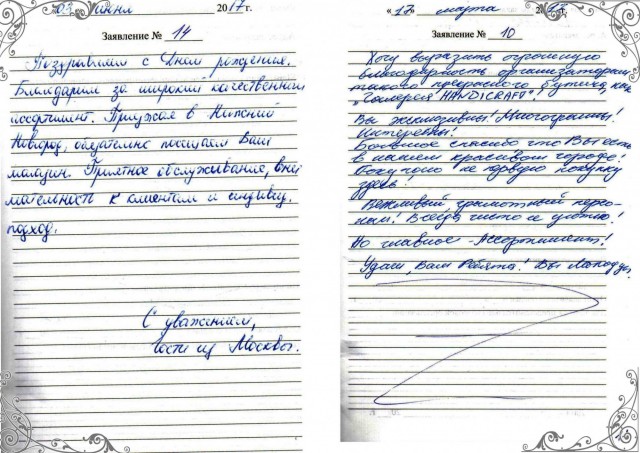 " 03 " июня 2017 г.
Заявление № 14
Поздравляем с Днем рождения.
Благодарим за широкий качественный
ассортимент. Приезжая в Нижний
Новгород, обязательно посещаем Ваш
магазин. Приятное обслуживание, вни
мательность к клиентам и индивид.
подход.
С уважением,
гости из Москвы.
" 17 " марта
Заявление № 10
Хочу выразить огромную
благодарность организаторам
такого прекрасного бутика как
"Галерея HANDICRAFT"!
Вы эксклюзивны! Многогранны!
Интересны!
Большое спасибо что Вы есть
в нашем красивом городе!
Покупаю не первую покупку
здесь!
Вежливый грамотный персо-
нал! Всегда чисто и уютно!
Но главное - Ассортимент!
Удачи Вам Ребята! Вы Молодцы!